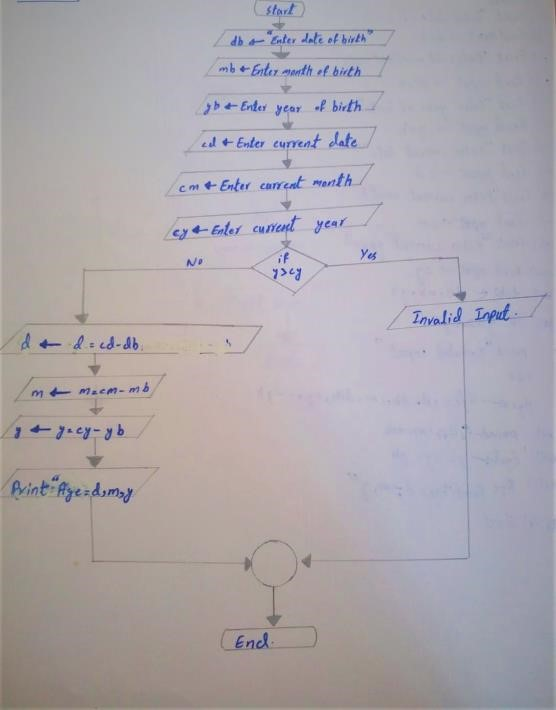 Start
db ← "Enter date of birth"
mb ← Enter month of birth
yb ← Enter year of birth
cd ← Enter current date
cm ← Enter current month
cy ← Enter current year
if
y>cy
No
Yes
Invalid Input.
d ← d = cd-db
m ← m=cm-mb
y ← y=cy-yb
Print="Age=d,m,y
End.